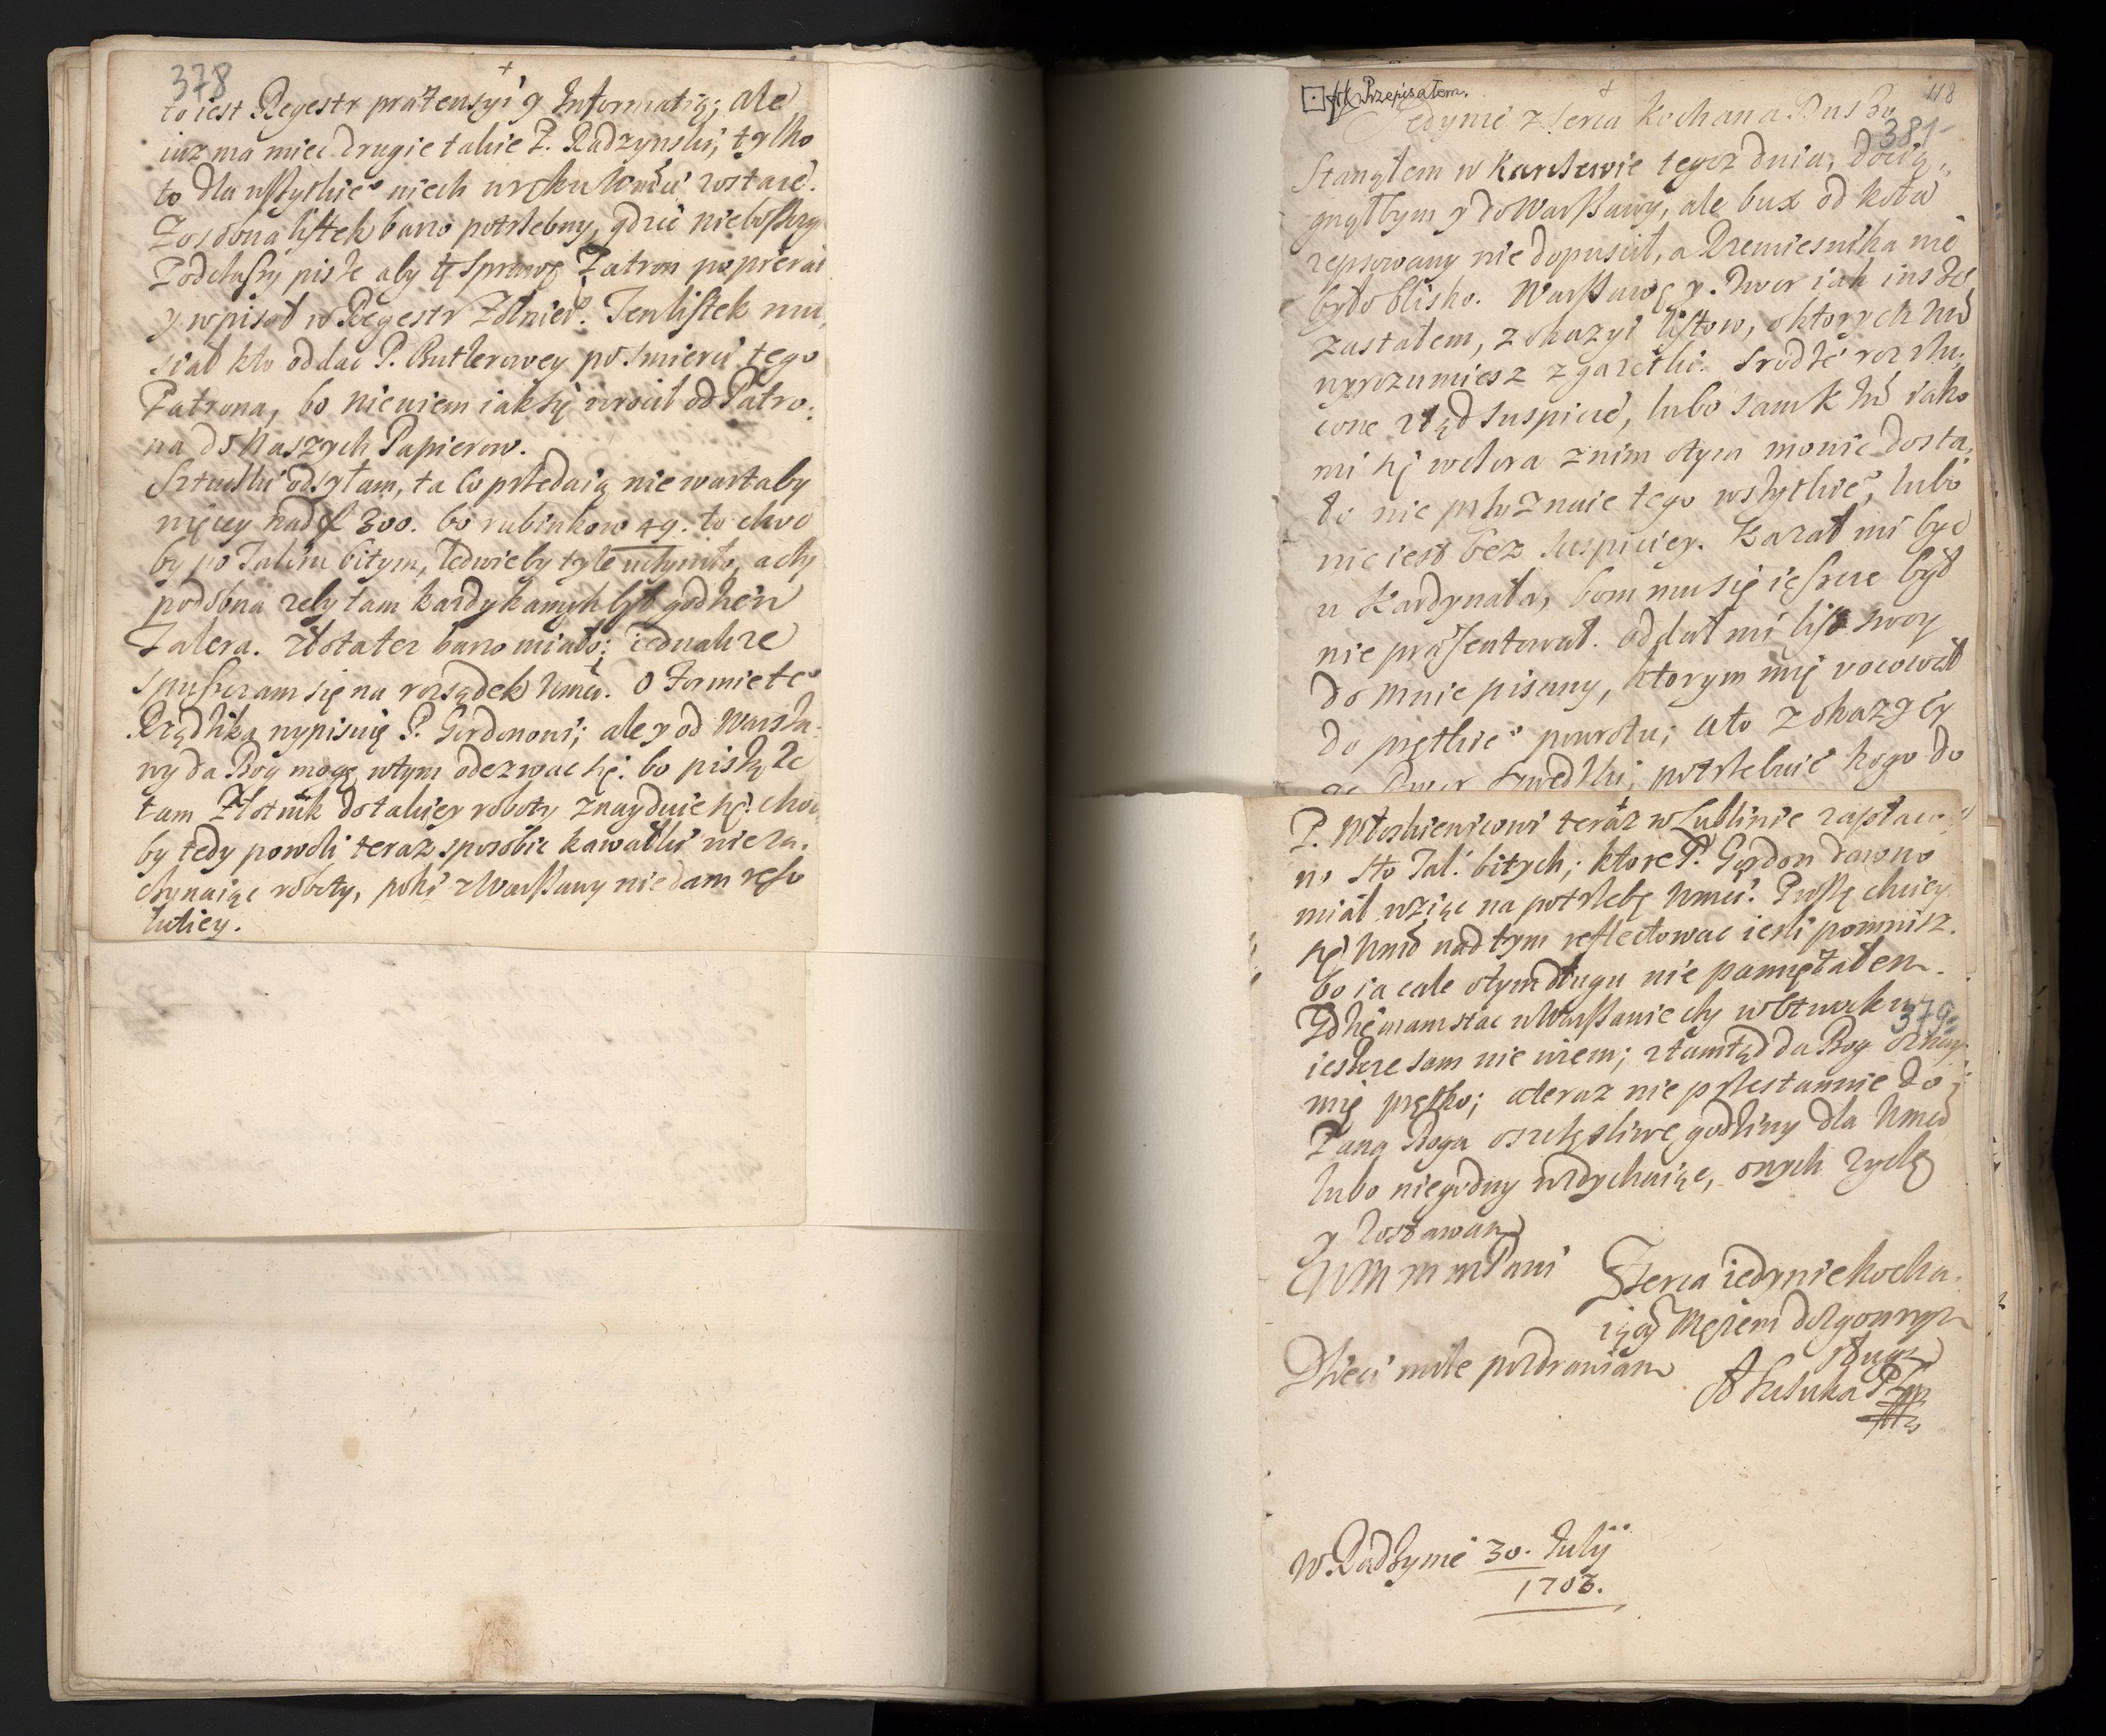 378
+
to iest Regestr prætensyi y Informatią; ale
iuz ma miec drugie takie P. Radzynski, tylko
to dla wszytkie° niech w ręku Wmści zostaie.
listek barzo potrzebny, gdzie nieboszczy
Podczaszy pisze aby tę sprawę Patron popierał
y wpisał w Regestr Ten listek mu,
siał kto oddac P. Butlerowey po smierci tego
Patrona, bo niewiem iak się wrocił od Patro:
na do Naszych Papierow.
Sztuczki odsyłam, ta co przedaią nie wartaby
więcy nad f 300. bo rubinkow 49. to choc
by po Taleru bitym, ledwieby tyle uczyniło, a czy
podobna zeby tam kazdy kamyk był godzien
Talera. złota tez barzo miało; iednakze
spuszczam się na rozsądek Wmści. O
Rządzika wypisuię P. Gordonowi; ale y od Warsza:
wy da Bog mogę w tym odezwac się: bo piszą ze
tam Złotnik do takiey roboty znayduie się. choc
by tedy powoli teraz sposobic kawałki nie za,
czynaiąc roboty, poki z Warszawy nie dam reso
lutiey.
Przepisałem.
+
118
Iedynie z Serca kochana Duszo
381
Stanąłem w Karczewie tegoz dnia, docią,,
gnąłbym y do Warszawy, ale bux od koła
zepsowany nie dopuscił, a Rzemiesnika nie
było blisko. Warszawę y Dwor iak
zastałem, z okazyi listow, o ktorych Wmć
wyrozumiesz z gazetki. Srodze rozrzu,
cone ztąd suspicie, lubo sam K Jmć iako
mi się wczora z nim o tym mowic dosta,
ło nie przyznaie tego wszytkie°, lubo
nie iest bez suspiciey. Kazał mi byc
u Kardynała, bom mu się ieszcze był
nie præsentował. oddał mi list swoy
do mnie pisany, ktorym mię vocował
do prętkie° powrotu; a to z okazyey
Dwor Szwedzki, potrzebuie kogo do
+
P. Włoskiewicowi teraz w Lublinie zapłaco
no sto Tal: bitych; ktore P. Gordon dawno
miał wziąc na potrzebę Wmści. Proszę chciey
się Wmć nad tym reflectowac iesli pomnisz.
bo ia cale o tym długu nie pamiętałem.
Gdzie mam stac w Warszawie czy w Otwocku
379
ieszcze sam nie wiem; ztamtąd da Bog oznay
mię prętko; a teraz nie przestannie do
Pana Boga o szczęsliwe godziny dla Wmści
lubo niegodny wzdychaiąc, onych zyczę
y zostawam
WM m m Pani
Serca iedynie kocha,
iący Męzem dozgonnym
sługą
Dzieci mile pozdrawiam
w Radzymie 30. Iulij
1703.